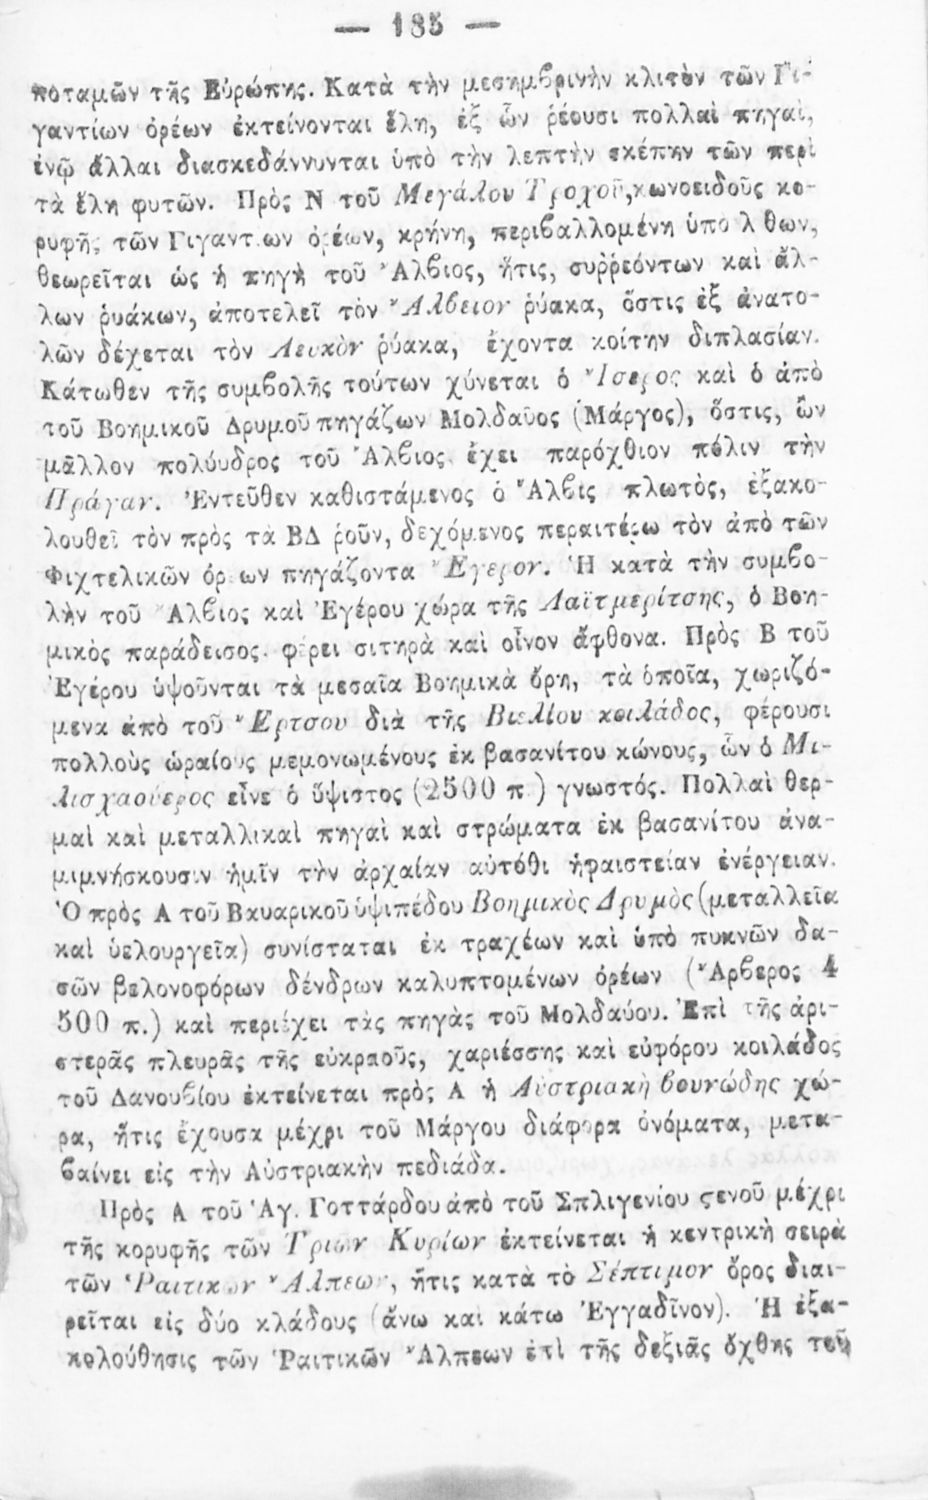 — 185 —
ποταμῶν τῆς Εὐρώπης. Κατὰ τὴν μεσημβρινὴν κλιτὺν τῶν Γι-
γαντίων ὀρέων ἐκτείνονται ἕλη, ἐξ ὧν ῥέουσι πολλαὶ πηγαὶ,
ἐνῷ ἄλλαι διασκεδάννυνται ὑπὸ τὴν λεπτὴν σκέπην τῶν περὶ
τὰ ἕλη φυτῶν. Πρὸς Ν τοῦ Μεγάλου Τροχοῦ, κωνοειδοῦς κο-
ρυφῆς τῶν Γιγαντίων ὀρέων, κρήνη, περιβαλλομένη ὑπὸ λίθων,
θεωρεῖται ὡς ἡ πηγὴ τοῦ Ἄλβιος, ἥτις, συῤῥεόντων καὶ ἄλ-
λων ῥυάκων, ἀποτελεῖ τὸν Ἄλβειον ῥύακα, ὅστις ἐξ ἀνατο-
λῶν δέχεται τὸν Λευκὸν ῥύακα, ἔχοντα κοίτην διπλασίαν.
Κάτωθεν τῆς συμβολῆς τούτων χύνεται ὁ Ἴσερος καὶ ὁ ἀπὸ
τοῦ Βοημικοῦ Δρυμοῦ πηγάζων Μολδαῦος (Μάργος), ὅστις, ὢν
μᾶλλον πολύυδρος τοῦ Ἄλβιος, ἔχει παρόχθιον πόλιν τὴν
Πράγαν. Ἐντεῦθεν καθιστάμενος ὁ Ἄλβις πλωτὸς, ἐξακο-
λουθεῖ τὸν πρὸς τὰ ΒΔ ῥοῦν, δεχόμενος περαιτέρω τὸν ἀπὸ τῶν
Φιχτελικῶν ὀρέων πηγάζοντα Ἔγερον. Ἡ κατὰ τὴν συμβο-
λὴν τοῦ Ἄλβιος καὶ Ἐγέρου χώρα τῆς Λαϊτμερίτσης, ὁ Βοη-
μικὸς παράδεισος, φέρει σιτηρὰ καὶ οἶνον ἄφθονα. Πρὸς Β τοῦ
Ἐγέρου ὑψοῦνται τὰ μεσαῖα Βοημικὰ ὄρη, τὰ ὁποῖα, χωριζό-
μενα ἀπὸ τοῦ Ἔρτσου διὰ τῆς Βιελίου κοιλάδος, φέρουσι
πολλοὺς ὡραίους μεμονωμένους ἐκ βασανίτου κώνους, ὧν ὁ Μι-
λισχαούερος εἶνε ὁ ὕψιστος (2500 π.) γνωστός. Πολλαὶ θερ-
μαὶ καὶ μεταλλικαὶ πηγαὶ καὶ στρώματα ἐκ βασανίτου ἀνα-
μιμνήσκουσιν ἡμῖν τὴν ἀρχαίαν αὐτόθι ἡφαιστείαν ἐνέργειαν.
Ὁ πρὸς Α τοῦ Βαυαρικοῦ ὑψιπέδου Βοημικὸς Δρυμὸς (μεταλλεῖα
καὶ ὑελουργεῖα) συνίσταται ἐκ τραχέων καὶ ὑπὸ πυκνῶν δα-
σῶν βελονοφόρων δένδρων καλυπτομένων ὀρέων (Ἄρβερος 4
500 π.) καὶ περιέχει τὰς πηγὰς τοῦ Μολδαύου. Ἐπὶ τῆς ἀρι-
στερᾶς πλευρᾶς τῆς εὐκραοῦς, χαριέσσης καὶ εὐφόρου κοιλάδος
τοῦ Δανουβίου ἐκτείνεται πρὸς Α ἡ Αὐστριακὴ βουνώδης χώ-
ρα, ἥτις ἔχουσα μέχρι τοῦ Μάργου διάφορα ὀνόματα, μετα-
βαίνει εἰς τὴν Αὐστριακὴν πεδιάδα.
Πρὸς Α τοῦ Ἁγ. Γοττάρδου ἀπὸ τοῦ Σπλιγενίου στενοῦ μέχρι
τῆς κορυφῆς τῶν Τριῶν Κυρίων ἐκτείνεται ἡ κεντρικὴ σειρὰ
τῶν Ῥαιτικῶν Ἄλπεων, ἥτις κατὰ τὸ Σέπτιμον ὄρος διαι-
ρεῖται εἰς δύο κλάδους (ἄνω καὶ κάτω Ἐγγαδῖνον). Ἡ ἐξα-
κολούθησις τῶν Ῥαιτικῶν Ἄλπεων ἐπὶ τῆς δεξιᾶς ὄχθης τοῦ